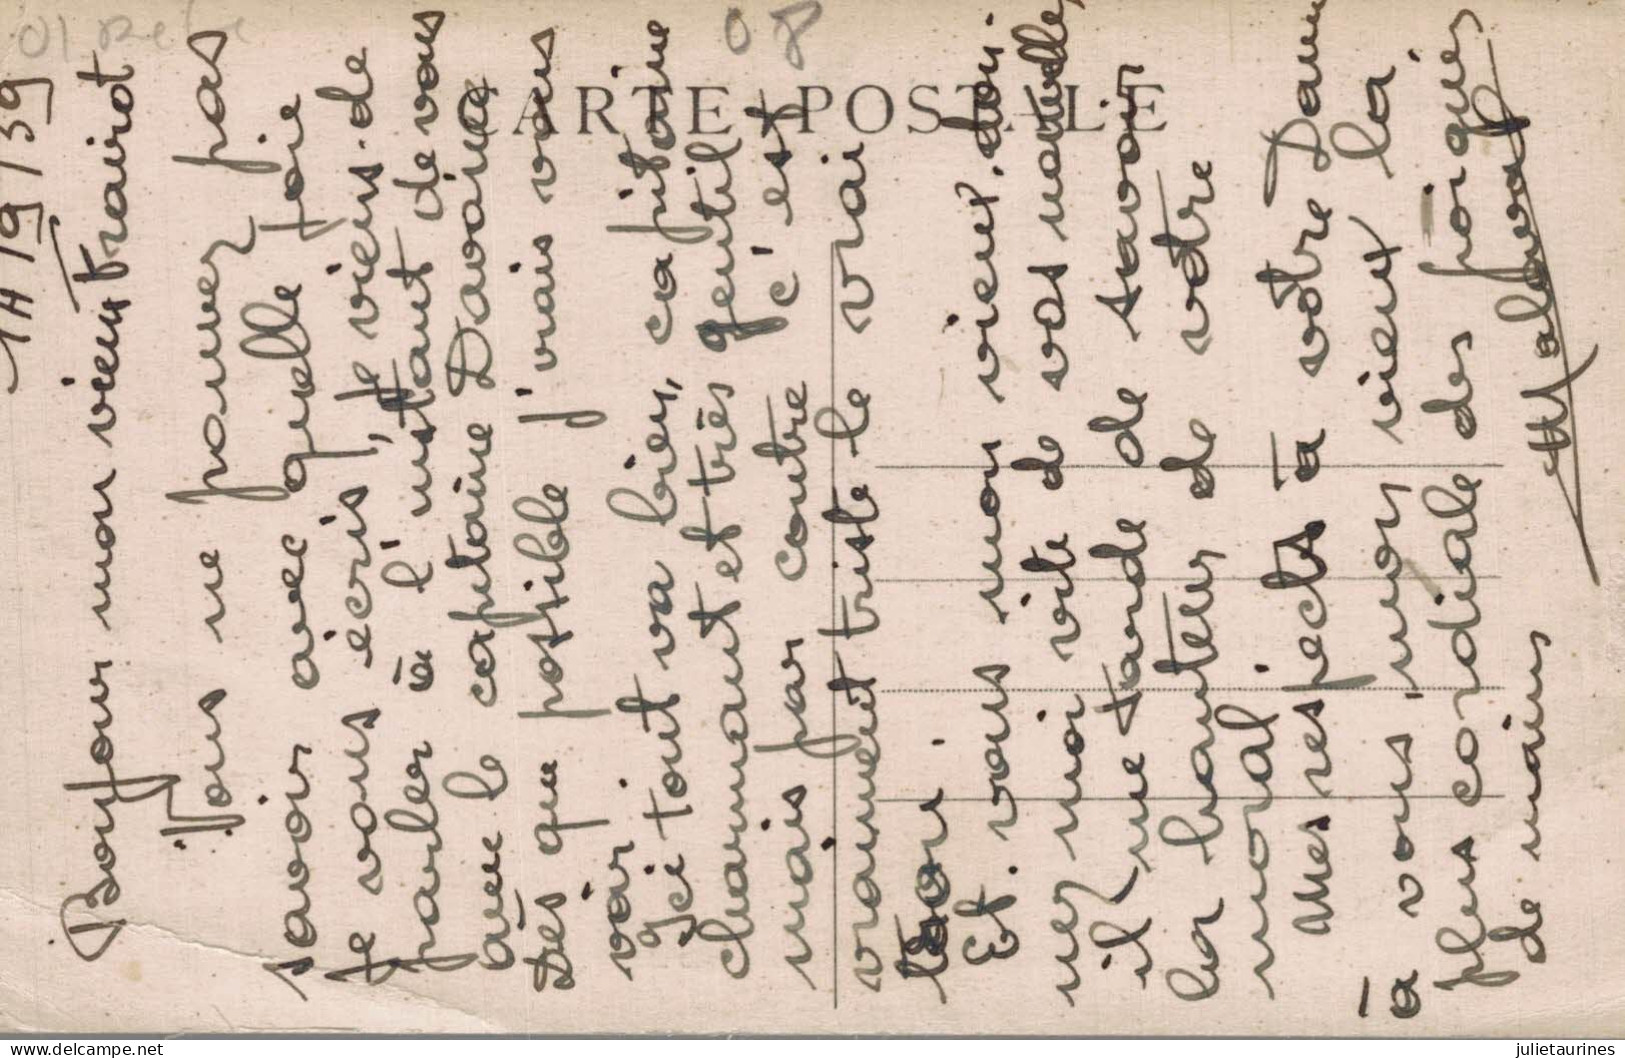 14/9/39
Bonjour mon vieux Frairot
Vous ne pouvez pas
savoir avec quelle joie
je vous écris, je viens de
parler à l'instant de vous
avec le capitaine Davaine
Dès que possible j'irais vous
voir.
Ici tout va bien, capitaine
charmant et très gentil
mais par contre c'est
vraiment triste le vrai
Et vous mon vieux, don-
nez moi vite de vos nouvelles,
il me tarde de savoir
la hauteur de votre
moral.
Mes respects à votre Dame
à vous mon vieux la
plus cordiale des poignées
de mains
CARTE POSTALE
www.delcampe.net
julietaurines